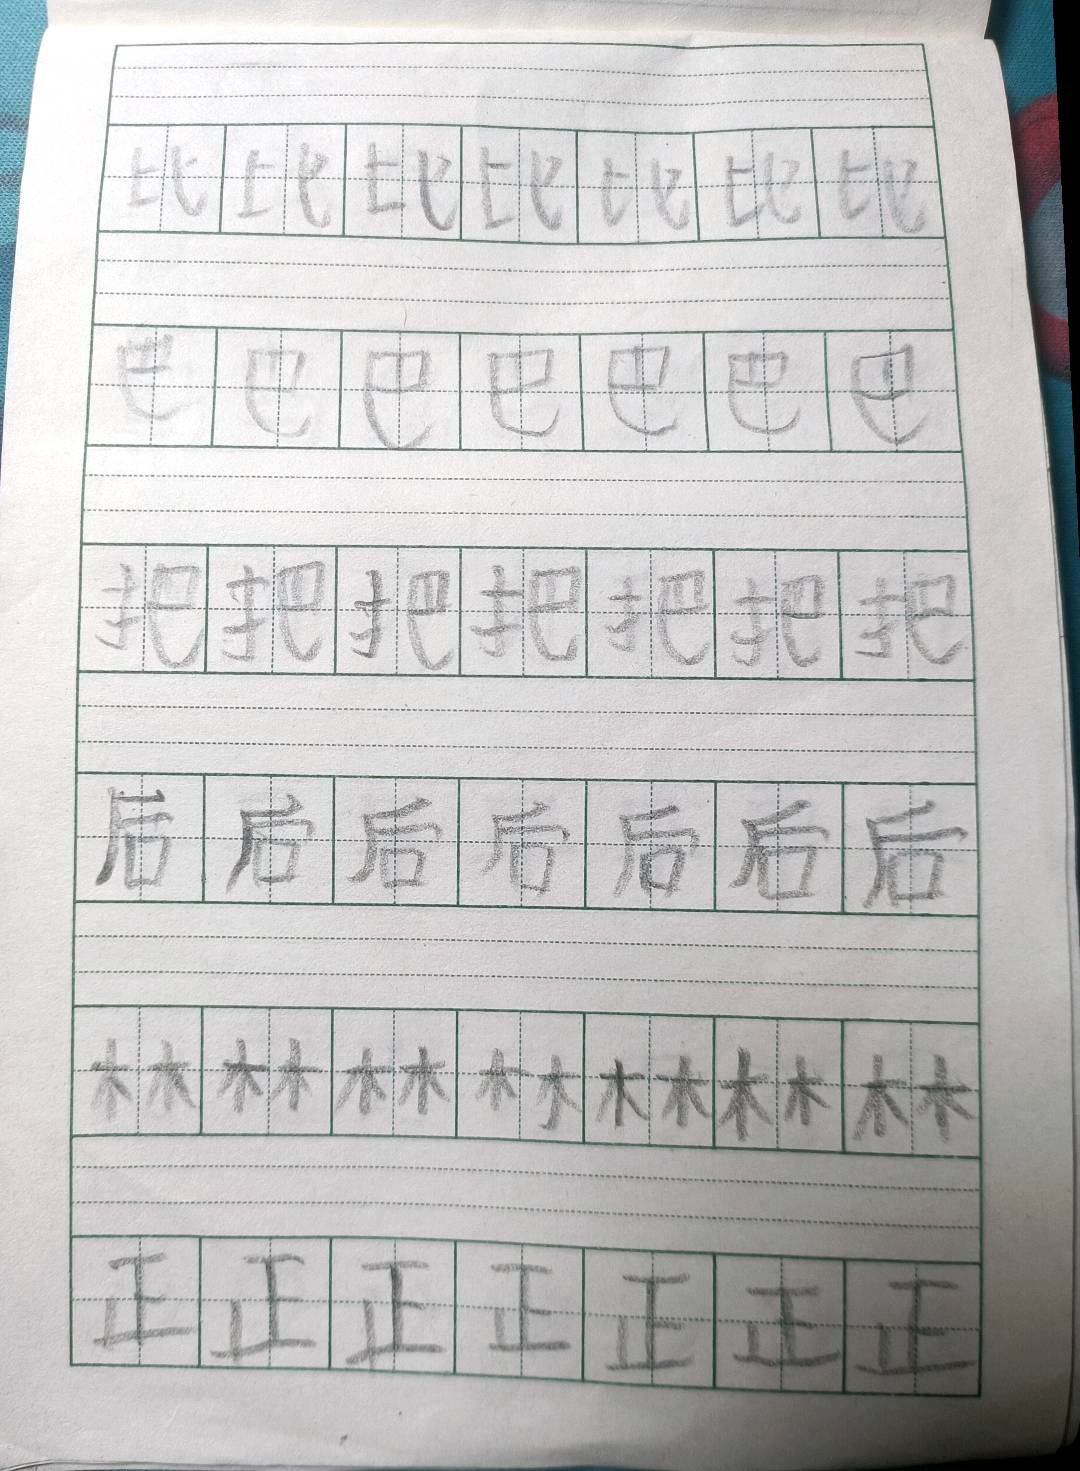 比比比比比比比
巴巴巴巴巴巴巴
把把把把把把把
后后后后后后后
林林林林林林林
正正正正正正正